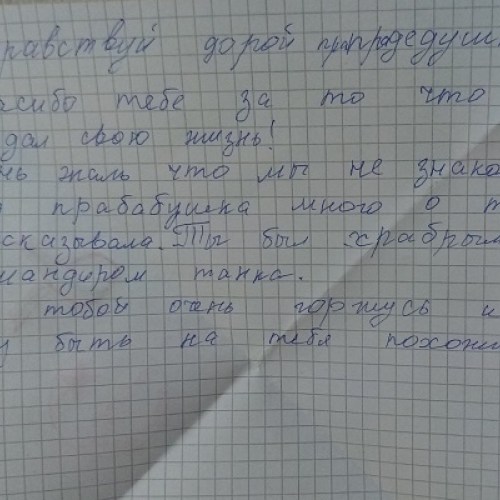 равствуй дорой прапрадедуш
асибо тебе за то что
дал свою жизнь!
нь жаль что мы не знако
прабабушка много о т
сказывала. Ты был храбрым
мандиром танка.
тобой очень горжусь и
у быть на тебя похожи